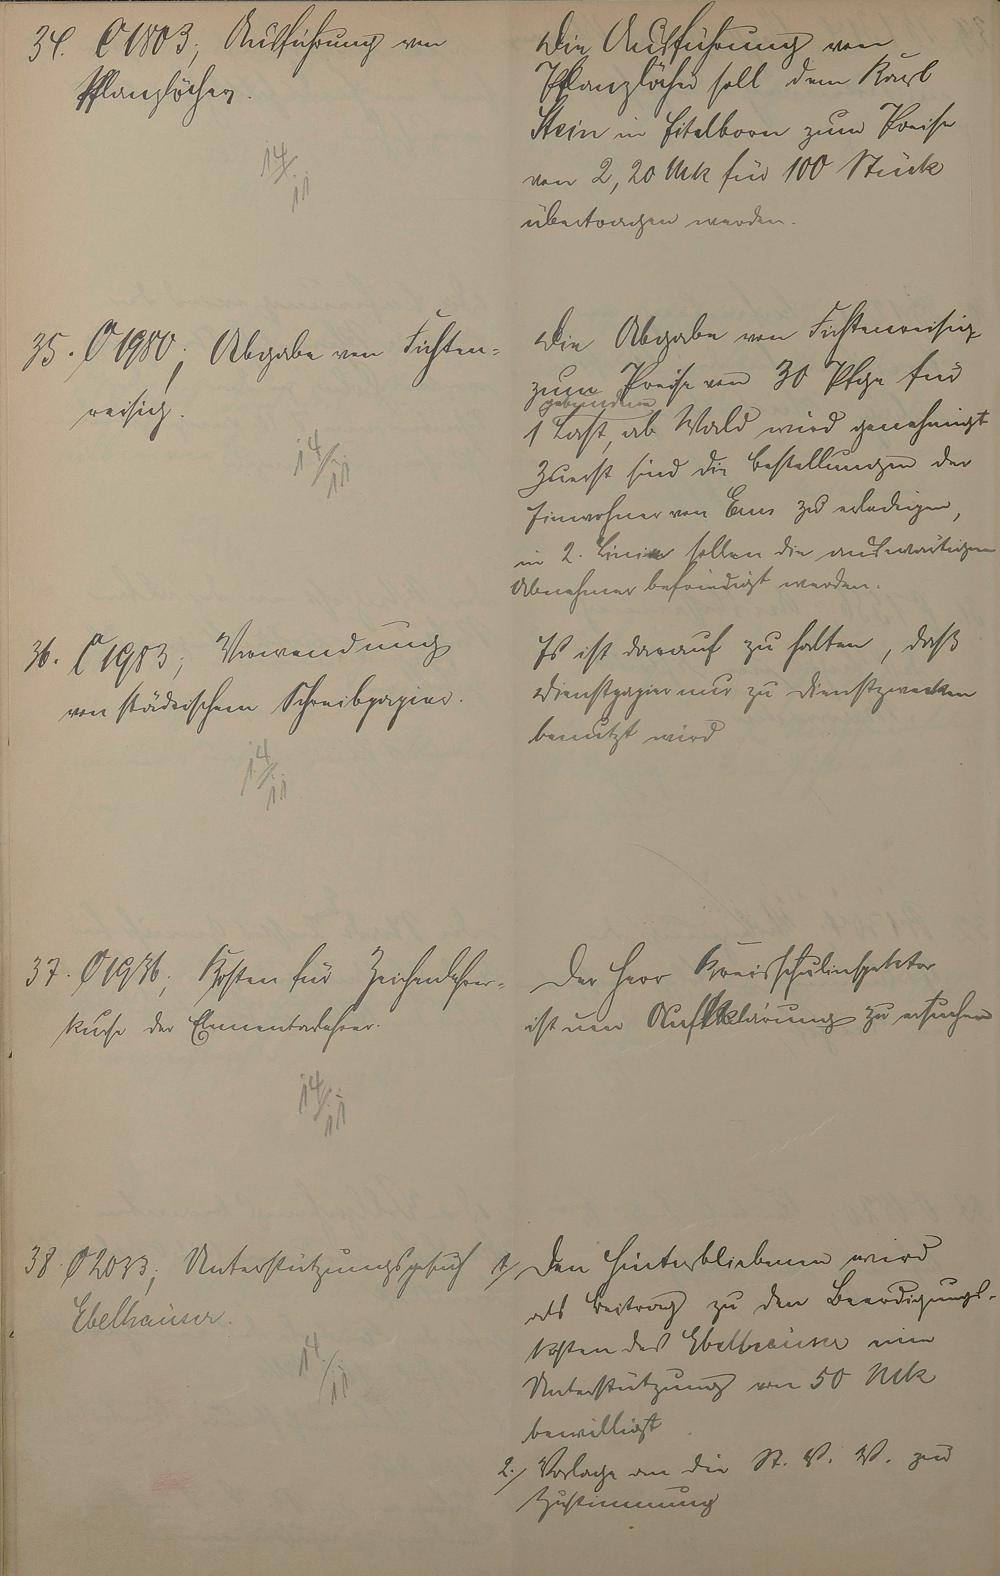 34. C 1803; Ausführung von
Pflanzlöcher.
14/11
Die Ausführung von
Pflanzlöcher soll dem Karl
Stein in Eitelborn zum Preise
von 2,20 Mk für 100 Stück
übertragen werden.
35. C 1980; Abgabe von Fichten-
reisig.
14/11
Die Abgabe von Fichtenreisig
zum Preise von 30 Pfge für
gebundene
1 Last, ab Wald wird genehmigt
Zuerst sind die Bestellungen der
Einwohner von Ems zu erledigen,
in 2. Linie sollen die auswärtigen
Abnehmer befriedigt werden.
36. C 1983; Verwendung
von städtischem Schreibpapier.
14/11
Es ist darauf zu halten, daß
Dienstpapier nur zu Dienstzwecken
benutzt wird
37. C 1976; Kosten für Zeichenlehrer-
kurse der Elementarlehrer.
14/11
Der Herr Kreisschulinspektor
ist um Aufklärung zu ersuchen
38 C 2033; Unterstützungsgesuch
Ebelhäuser.
14/11
1./ Den Hinterbliebenen wird
als Beitrag zu den Beerdigungs-
kosten des Ebelhäuser eine
Unterstützung von 50 Mk
bewilligt
2./ Vorlage an die St. V. V. zur
Zustimmung